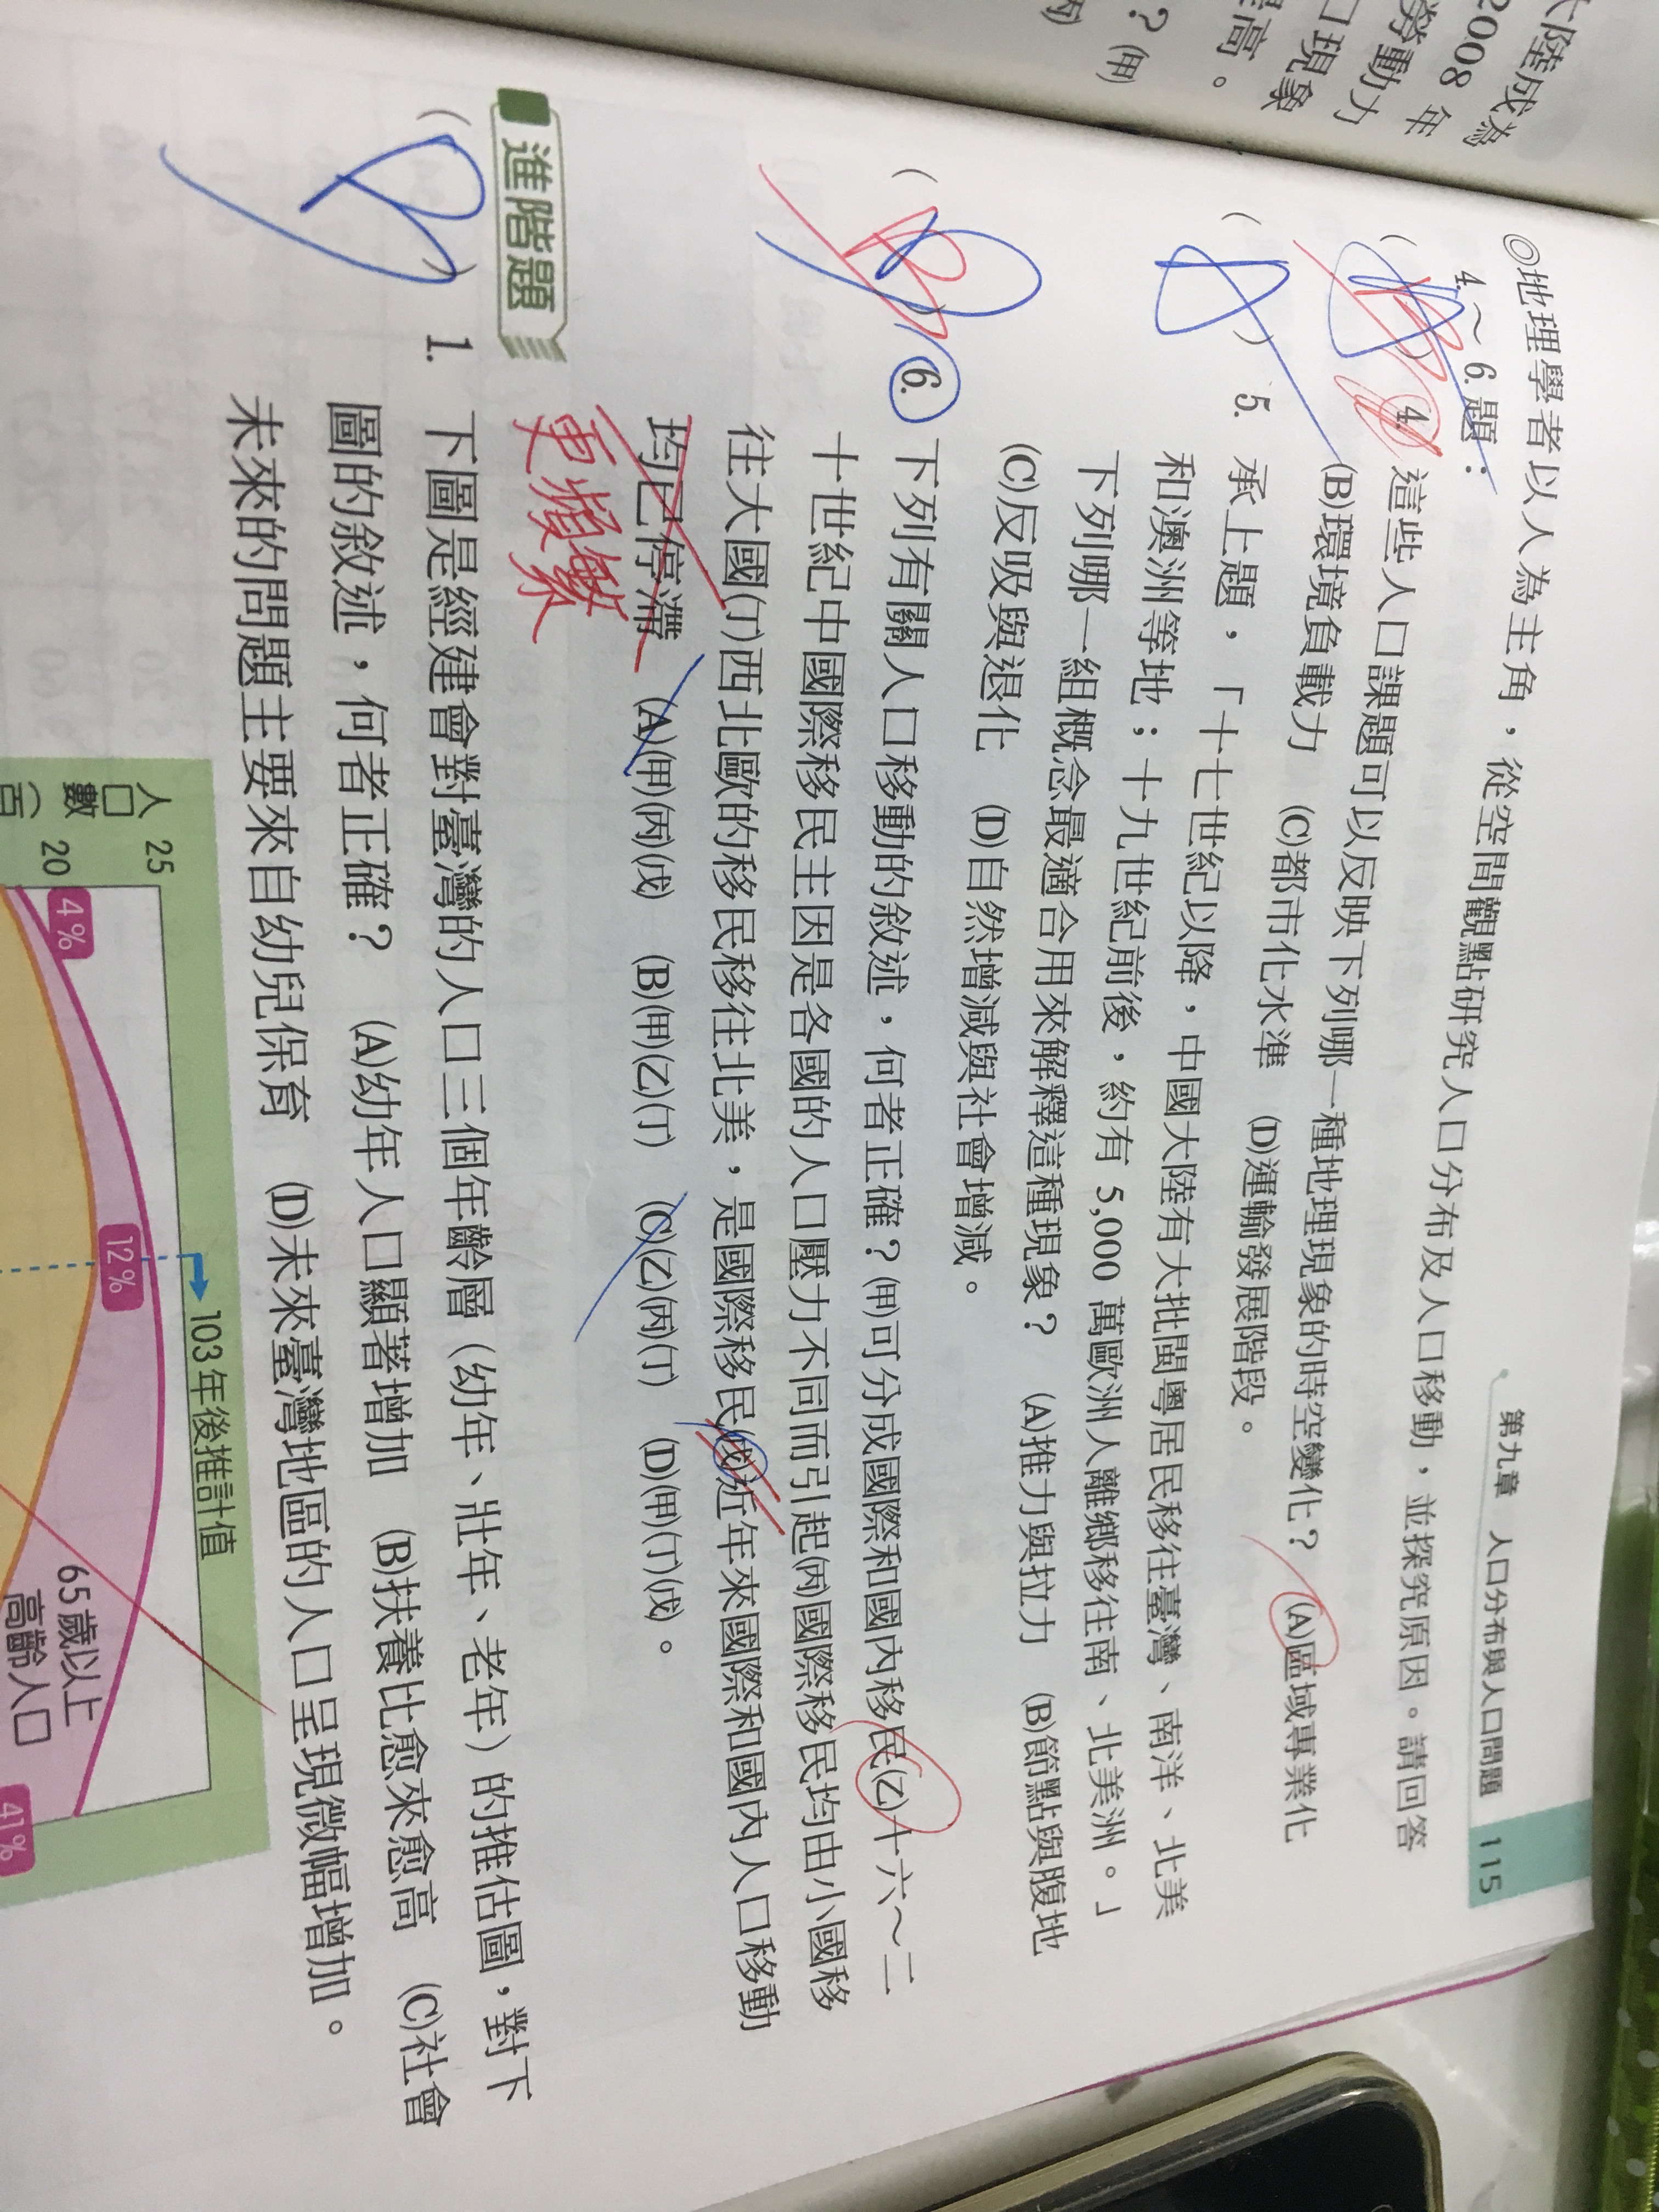 大陸成為
2008 年
勞動力
口現象
提高。
？(甲)
(丙)
第九章 人口分布與人口問題 115
◎地理學者以人為主角，從空間觀點研究人口分布及人口移動，並探究原因。請回答
4.～6.題：
( B ) 4. 這些人口課題可以反映下列哪一種地理現象的時空變化？ (A)區域專業化
(B)環境負載力 (C)都市化水準 (D)運輸發展階段。
( A ) 5. 承上題，「十七世紀以降，中國大陸有大批閩粵居民移往臺灣、南洋、北美
和澳洲等地；十九世紀前後，約有 5,000 萬歐洲人離鄉移往南、北美洲。」
下列哪一組概念最適合用來解釋這種現象？ (A)推力與拉力 (B)節點與腹地
(C)反吸與退化 (D)自然增減與社會增減。
( B ) 6. 下列有關人口移動的敘述，何者正確？(甲)可分成國際和國內移民(乙)十六～二
十世紀中國際移民主因是各國的人口壓力不同而引起(丙)國際移民均由小國移
往大國(丁)西北歐的移民移往北美，是國際移民(戊)近年來國際和國內人口移動
均已停滯 (A)(甲)(丙)(戊) (B)(甲)(乙)(丁) (C)(乙)(丙)(丁) (D)(甲)(丁)(戊)。
更頻繁
進階題
( B ) 1. 下圖是經建會對臺灣的人口三個年齡層（幼年、壯年、老年）的推估圖，對下
圖的敘述，何者正確？ (A)幼年人口顯著增加 (B)扶養比愈來愈高 (C)社會
未來的問題主要來自幼兒保育 (D)未來臺灣地區的人口呈現微幅增加。
103 年後推計值
25
20
人口數（百
4%
12%
41%
65歲以上
高齡人口